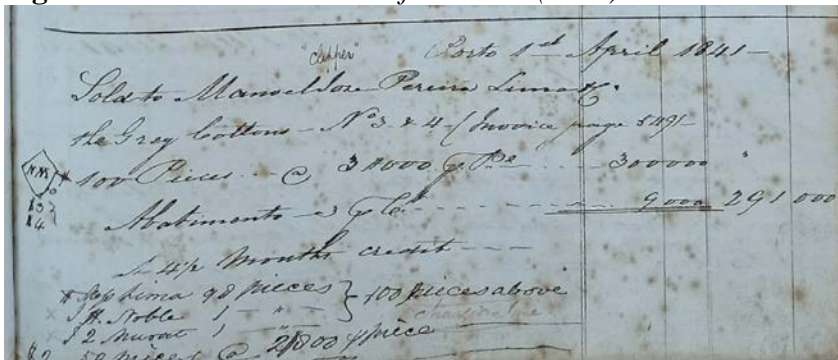 "Clipper" Porto 1st April 1841 —
Sold to Manoel Jose Pereira Lima
the Grey Cottons — No 3 & 4 — (Invoice page 549) —
NM 3 4
100 Pieces @ 3 0000 p Pe 300000 "
Abatimento 3 p Ct 9000 291 000
months credit
Lima 98 pieces } 100 pieces above
Noble 1 "
2 Murat 1 "
50 pieces @ 2800 p piece